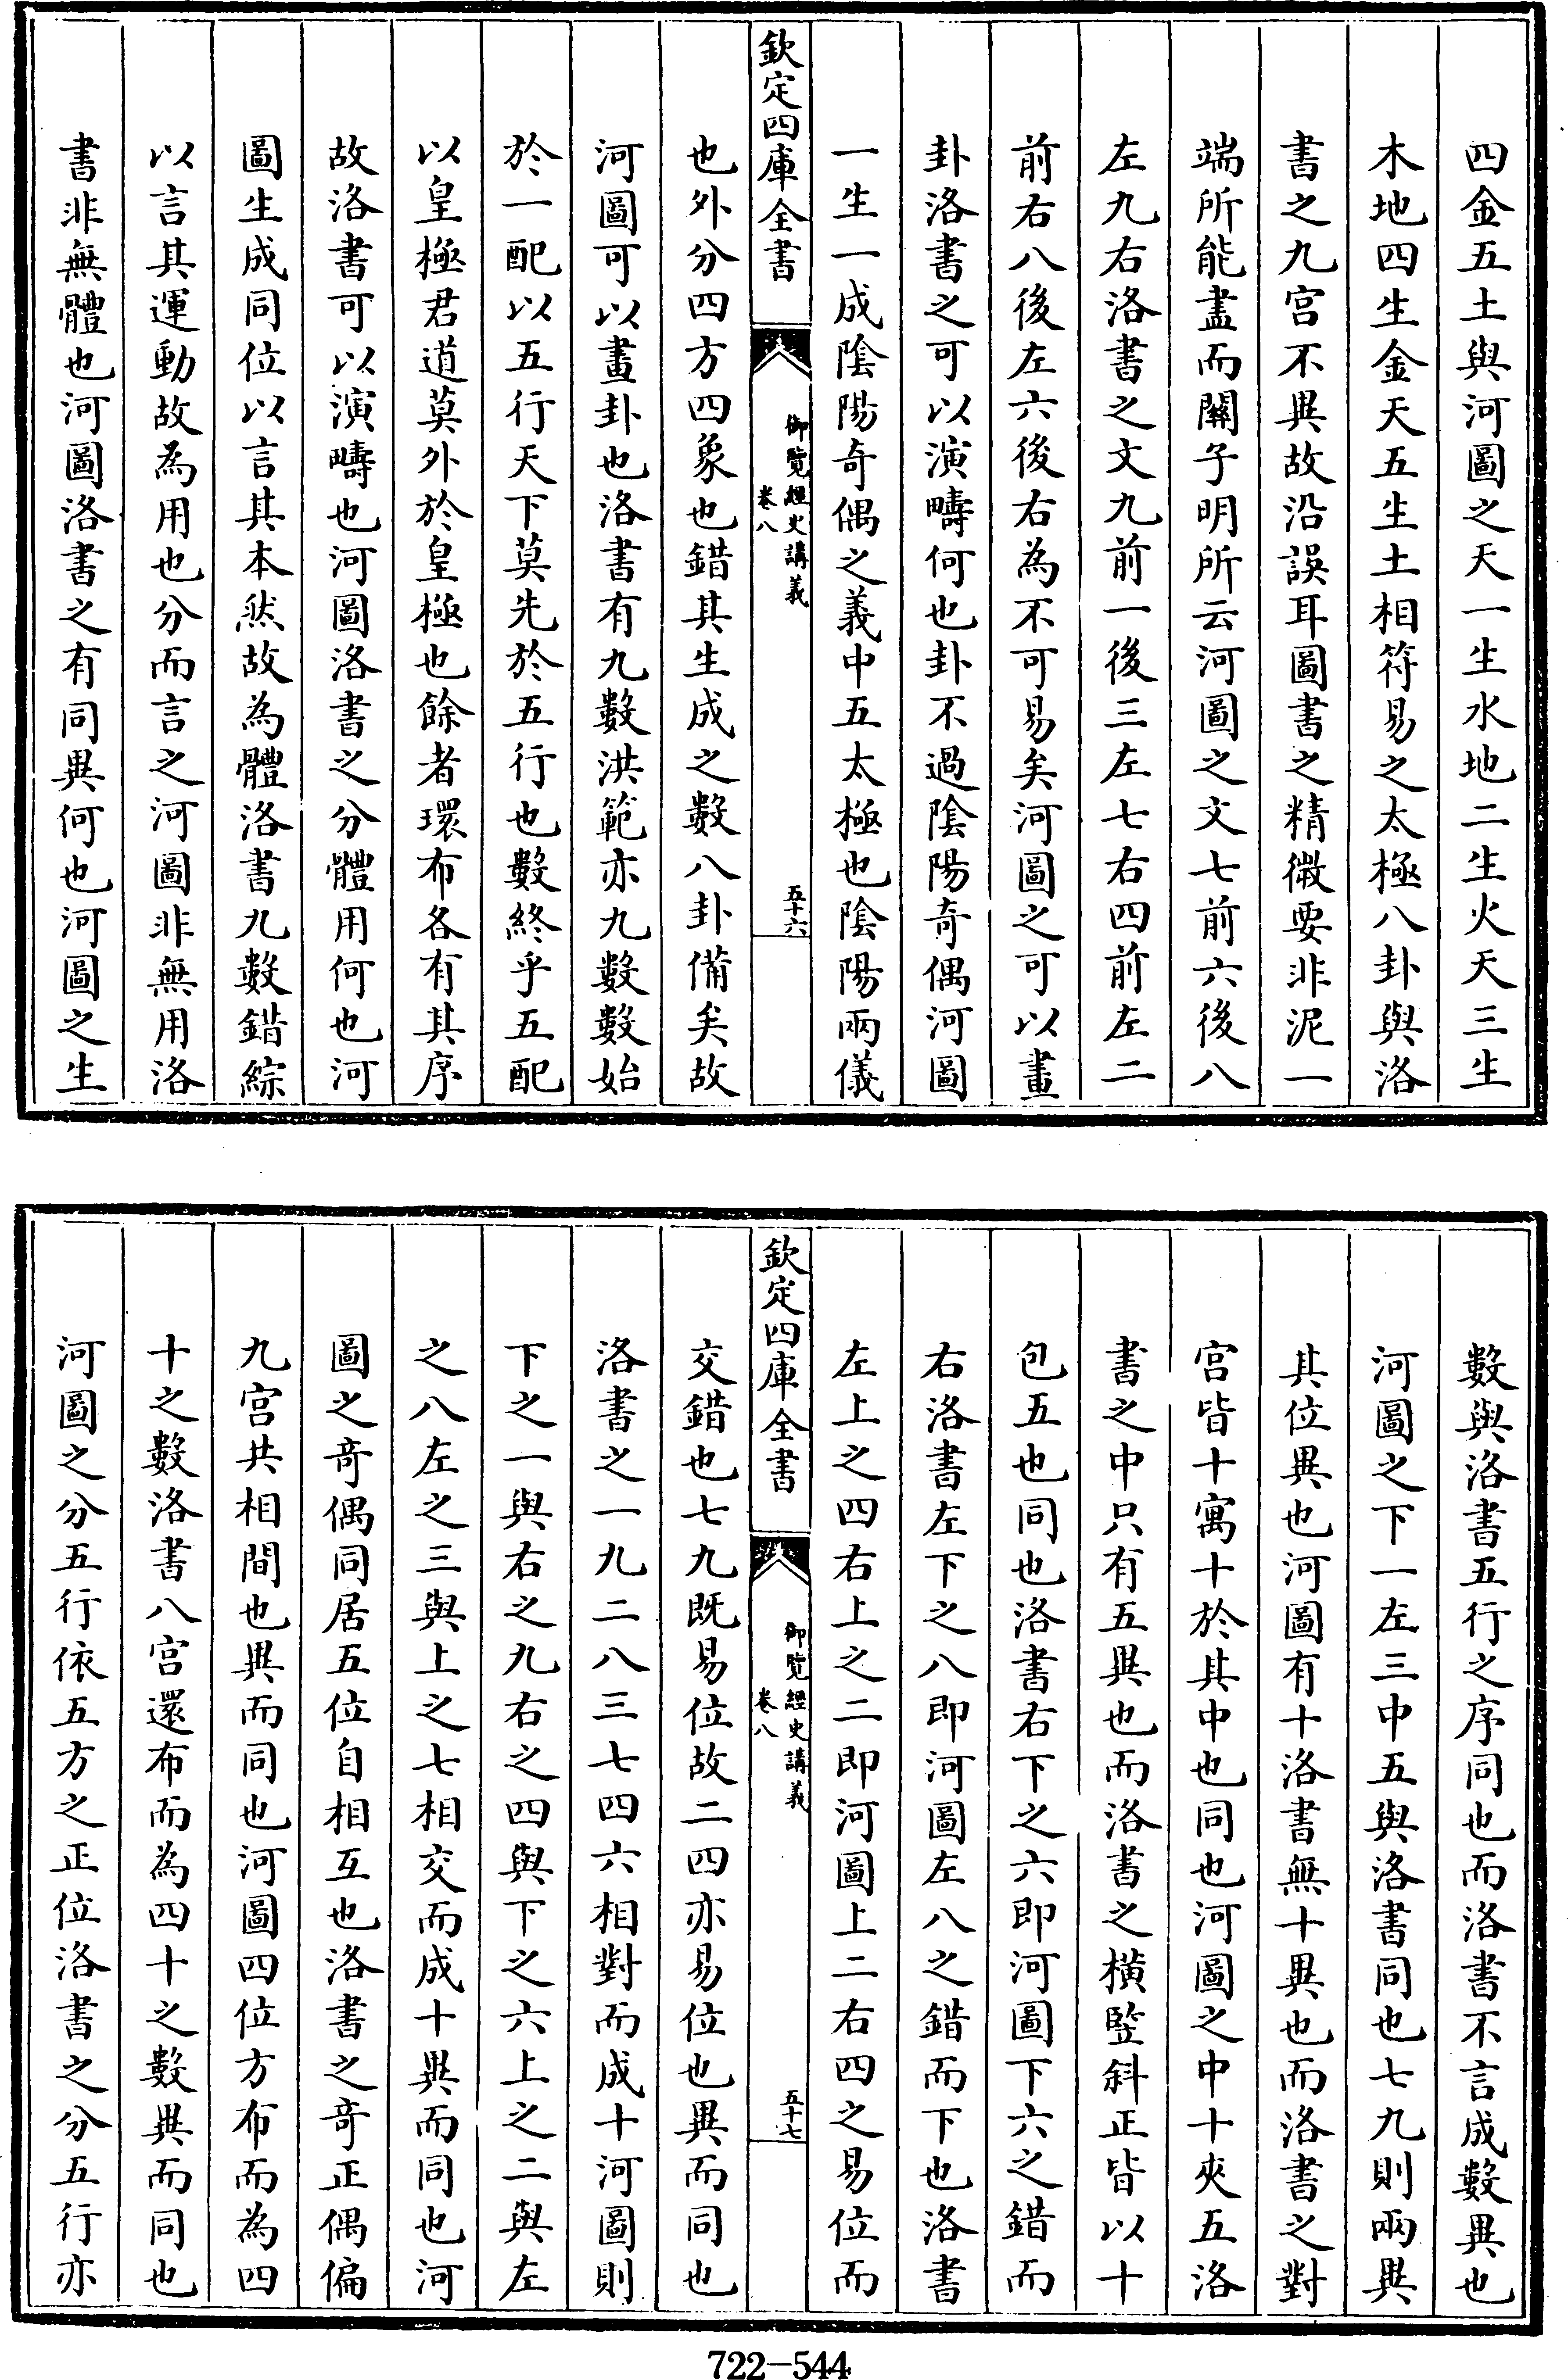 四金五土與河圖之天一生水地二生火天三生
木地四生金天五生土相符易之太極八卦與洛
書之九宫不異故沿誤耳圖書之精微要非泥一
端所能盡而關子明所云河圖之文七前六後八
左九右洛書之文九前一後三左七右四前左二
前右八後左六後右為不可易矣河圖之可以畫
卦洛書之可以演疇何也卦不過陰陽奇偶河圖
一生一成陰陽奇偶之義中五太極也陰陽兩儀
欽定四庫全書
御覽經史講義
卷八
五十六
也外分四方四象也錯其生成之數八卦備矣故
河圖可以畫卦也洛書有九數洪範亦九數數始
於一配以五行天下莫先於五行也數終乎五配
以皇極君道莫外於皇極也餘者環布各有其序
故洛書可以演疇也河圖洛書之分體用何也河
圖生成同位以言其本然故為體洛書九數錯綜
以言其運動故為用也分而言之河圖非無用洛
書非無體也河圖洛書之有同異何也河圖之生
數與洛書五行之序同也而洛書不言成數異也
河圖之下一左三中五與洛書同也七九則兩異
其位異也河圖有十洛書無十異也而洛書之對
宫皆十寓十於其中也同也河圖之中十夾五洛
書之中只有五異也而洛書之橫竪斜正皆以十
包五也同也洛書右下之六即河圖下六之錯而
右洛書左下之八即河圖左八之錯而下也洛書
左上之四右上之二即河圖上二右四之易位而
欽定四庫全書
御覽經史講義
卷八
五十七
交錯也七九既易位故二四亦易位也異而同也
洛書之一九二八三七四六相對而成十河圖則
下之一與右之九右之四與下之六上之二與左
之八左之三與上之七相交而成十異而同也河
圖之奇偶同居五位自相互也洛書之奇正偶偏
九宫共相間也異而同也河圖四位方布而為四
十之數洛書八宫還布而為四十之數異而同也
河圖之分五行依五方之正位洛書之分五行亦
722-544